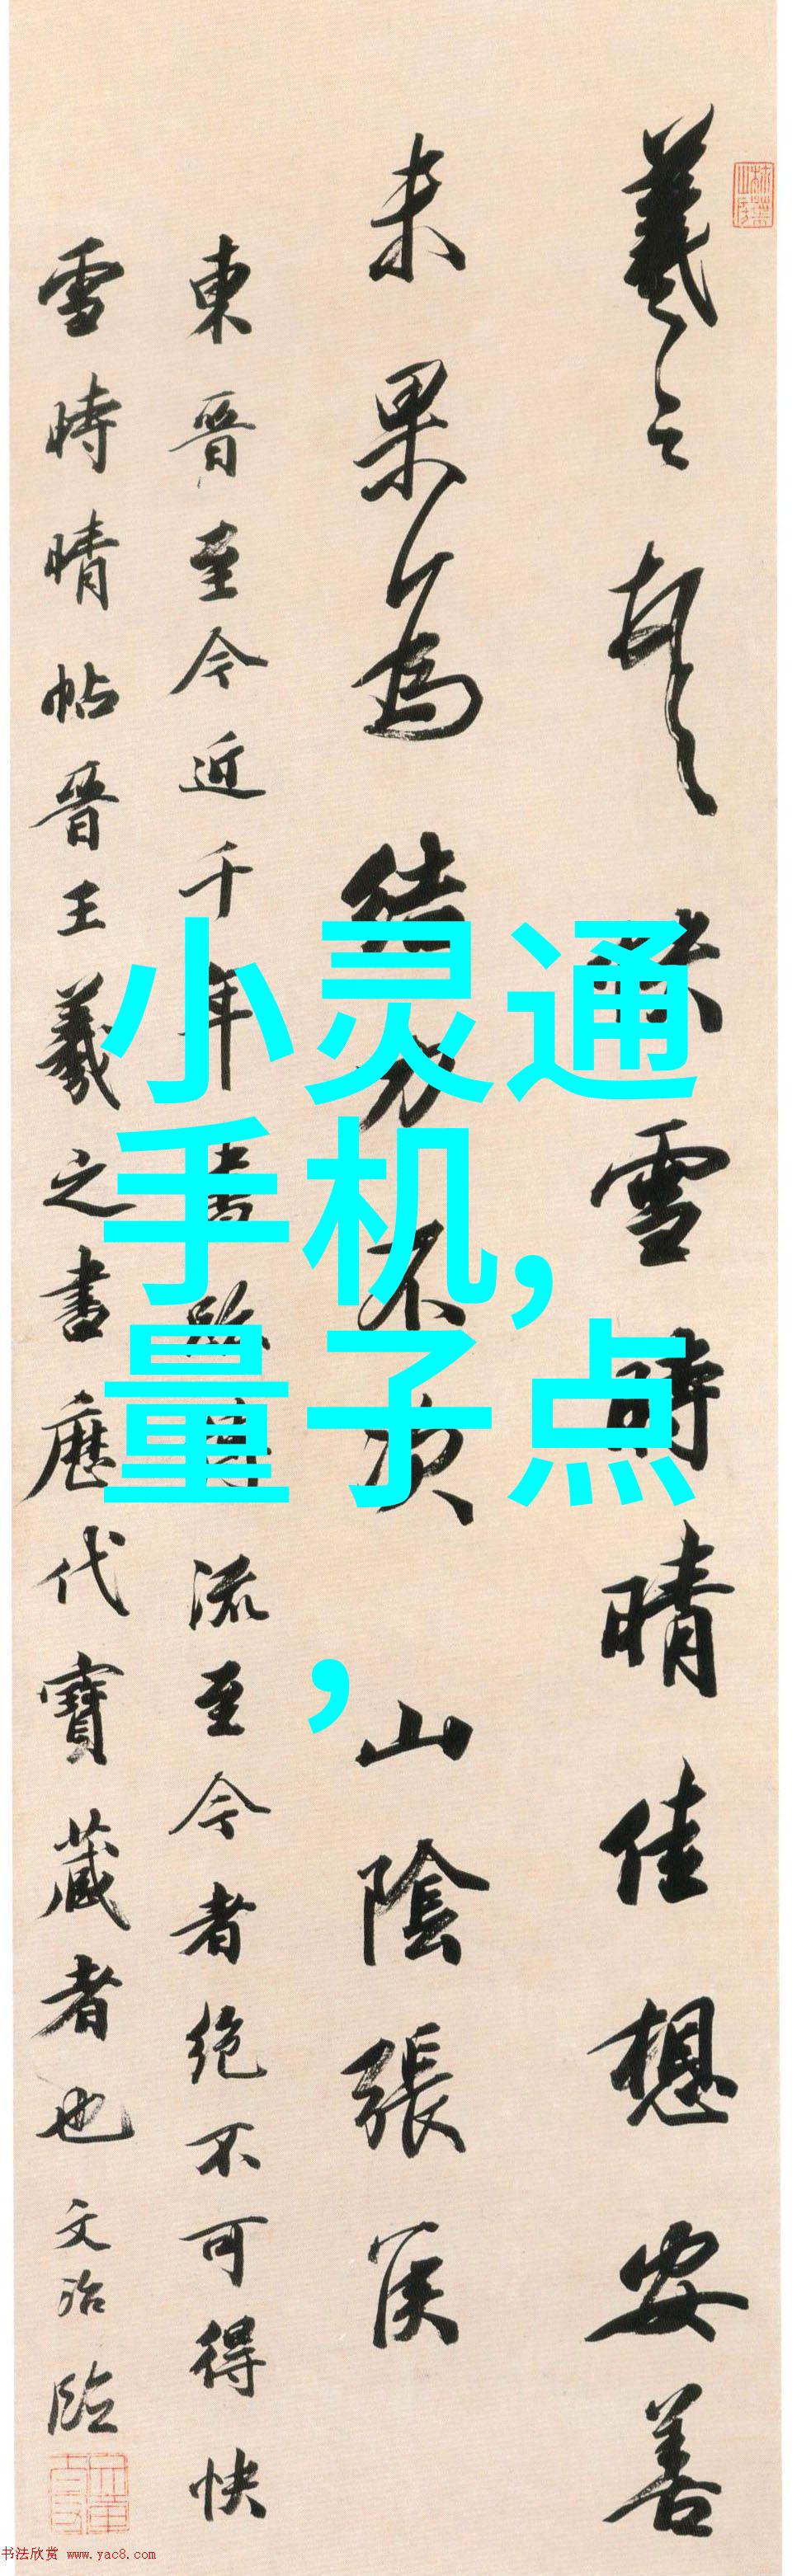 羲之頓首快雪時晴佳想安善
未果為結力不次 山陰張侯
東晉至今近千年書跡傳流至今者絕不可得快
雪時晴帖晉王羲之書歷代寶藏者也 文治臨
小灵通
手机，
量子点
，
书法欣赏 www.yac8.com